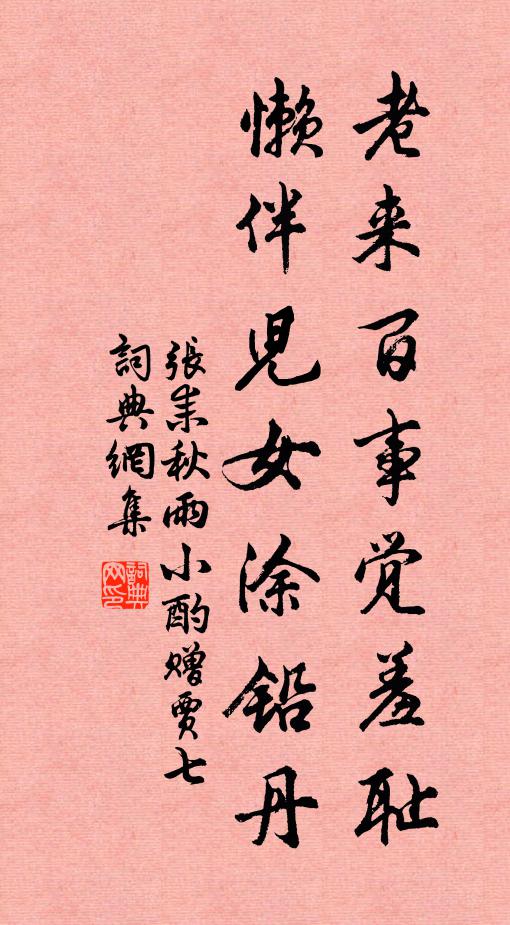 老来百事觉羞耻
懒伴児女涂鉛丹
張耒秋雨小酌贈賈七
詞典網集
詞典网印